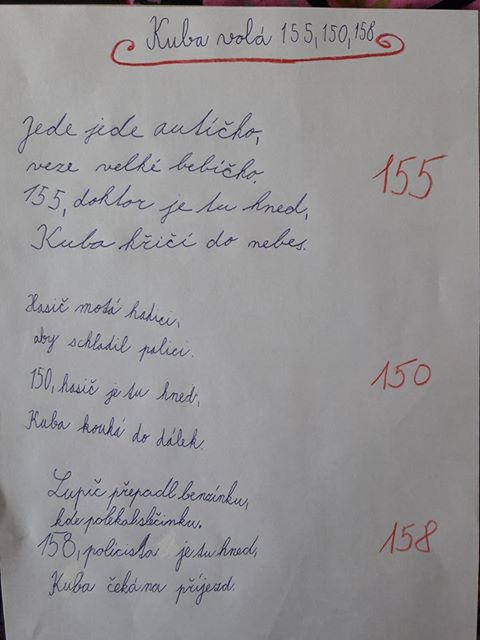 Kuba volá 155, 150, 158
Jede jede autíčko,
veze velké bebíčko.
155
155, doktor je tu hned,
Kuba křičí do nebes.
Hasič motá hadici,
aby schladil polici.
150
150, hasič je tu hned,
Kuba kouká do dálek.
Lupič přepadl benzínku,
kde polekal slečinku.
158
158, policista je tu hned,
Kuba čeká na příjezd.